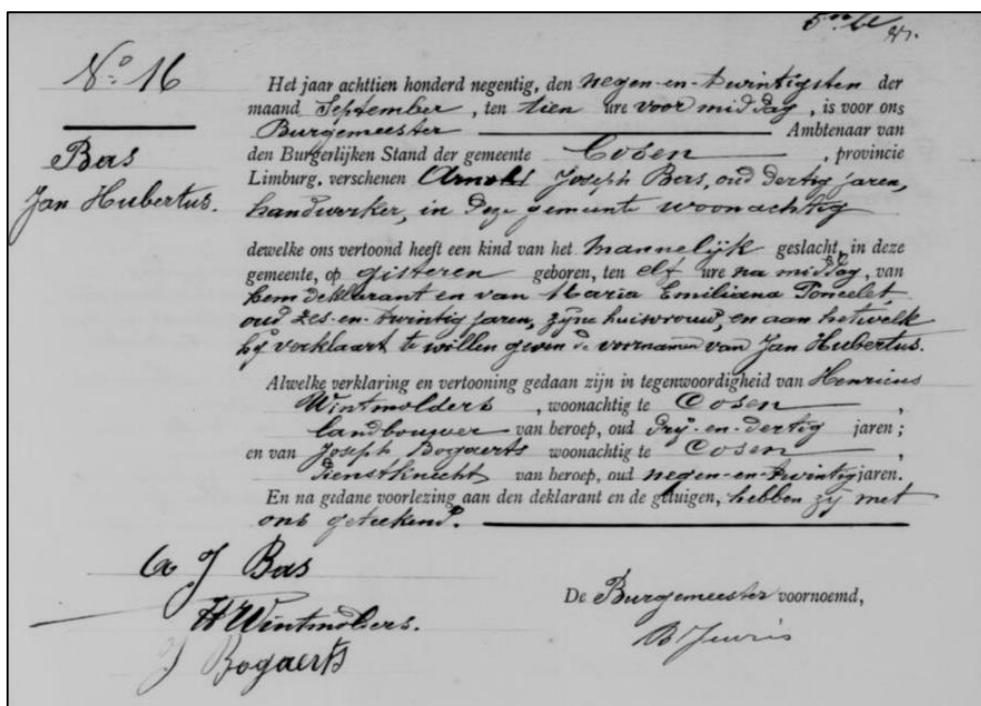 Nº 16
Bas
Jan Hubertus.
Het jaar achttien honderd negentig, den negen-en-twintigsten der
maand September, ten tien ure voor middag, is voor ons
Burgemeester Ambtenaar van
den Burgerlijken Stand der gemeente Cosen, provincie
Limburg, verschenen Arnold Joseph Bas, oud dertig jaren,
handwerker, in deze gemeente woonachtig
dewelke ons vertoond heeft een kind van het mannelijk geslacht, in deze
gemeente, op gisteren geboren, ten elf ure na middag, van
hem deklarant en van Maria Emiliana Poncelet,
oud zes-en-twintig jaren, zijne huisvrouw, en aan hetwelk
hij verklaart te willen geven de voornamen van Jan Hubertus.
Alwelke verklaring en vertooning gedaan zijn in tegenwoordigheid van Henricus
Wintmolders, woonachtig te Cosen,
landbouwer van beroep, oud drij-en-dertig jaren;
en van Joseph Bogaerts woonachtig te Cosen,
dienstknecht van beroep, oud negen-en-twintig jaren.
En na gedane voorlezing aan den deklarant en de getuigen, hebben zij met
ons geteekend.
A J Bas
H Wintmolders.
J Bogaerts
De Burgemeester voornoemd,